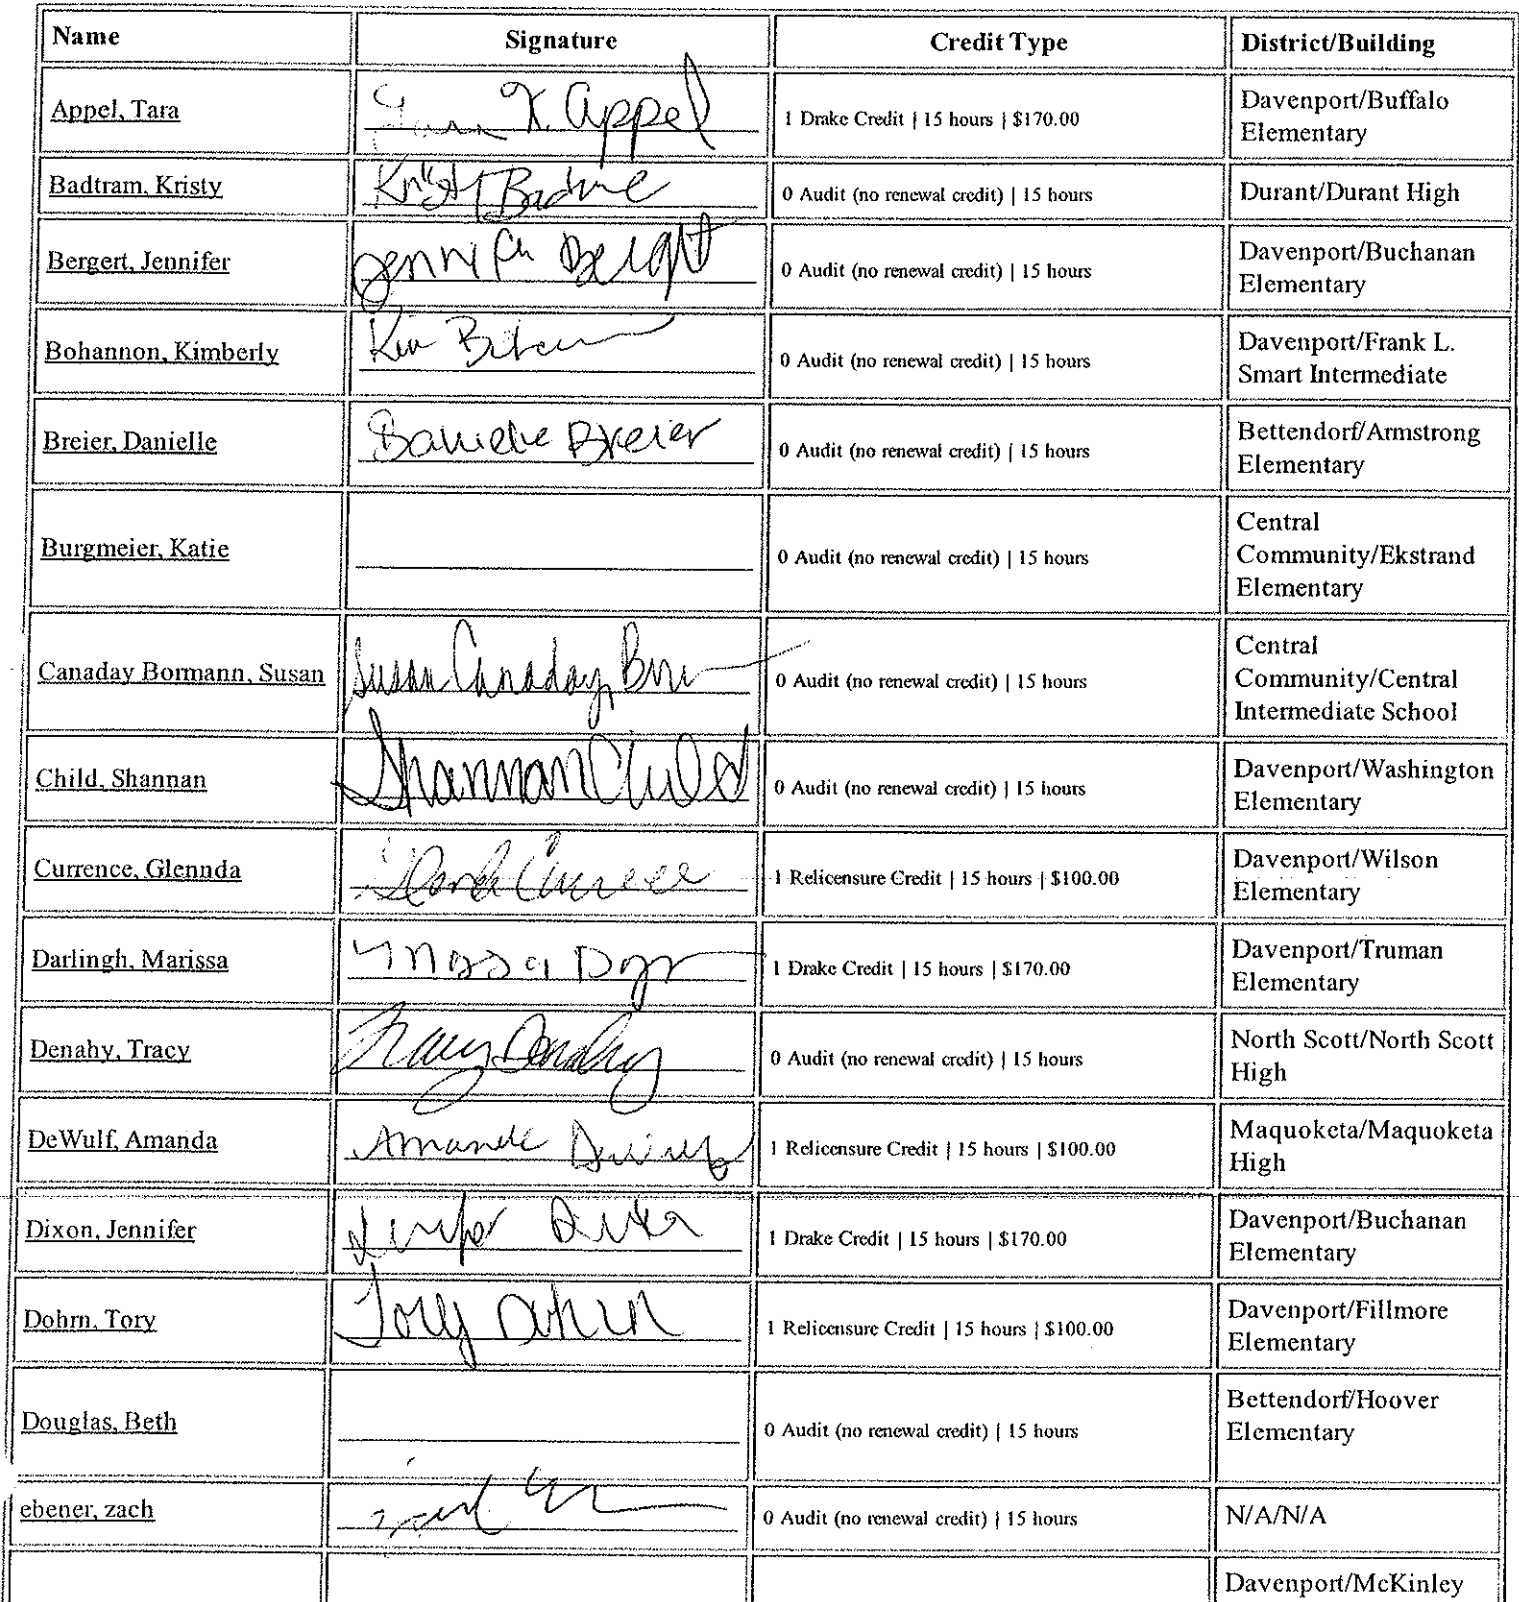 Name Signature Credit Type District/Building
Appel, Tara K. Appel 1 Drake Credit | 15 hours | $170.00 Davenport/Buffalo
Elementary
Badtram, Kristy Kristy 0 Audit (no renewal credit) | 15 hours Durant/Durant High
Bergert, Jennifer Jennifer Bergert 0 Audit (no renewal credit) | 15 hours Davenport/Buchanan
Elementary
Bohannon, Kimberly Kim 0 Audit (no renewal credit) | 15 hours Davenport/Frank L.
Smart Intermediate
Breier, Danielle Danielle Breier 0 Audit (no renewal credit) | 15 hours Bettendorf/Armstrong
Elementary
Burgmeier, Katie 0 Audit (no renewal credit) | 15 hours Central
Community/Ekstrand
Elementary
Canaday Bormann, Susan Susan Canaday 0 Audit (no renewal credit) | 15 hours Central
Community/Central
Intermediate School
Child, Shannan Shannan Child 0 Audit (no renewal credit) | 15 hours Davenport/Washington
Elementary
Currence, Glennda 1 Relicensure Credit | 15 hours | $100.00 Davenport/Wilson
Elementary
Darlingh, Marissa 1 Drake Credit | 15 hours | $170.00 Davenport/Truman
Elementary
Denahy, Tracy Tracy Denahy 0 Audit (no renewal credit) | 15 hours North Scott/North Scott
High
DeWulf, Amanda Amanda DeWulf 1 Relicensure Credit | 15 hours | $100.00 Maquoketa/Maquoketa
High
Dixon, Jennifer Jennifer Dixon 1 Drake Credit | 15 hours | $170.00 Davenport/Buchanan
Elementary
Dohrn, Tory Tory Dohrn 1 Relicensure Credit | 15 hours | $100.00 Davenport/Fillmore
Elementary
Douglas, Beth 0 Audit (no renewal credit) | 15 hours Bettendorf/Hoover
Elementary
ebener, zach 0 Audit (no renewal credit) | 15 hours N/A/N/A
Davenport/McKinley